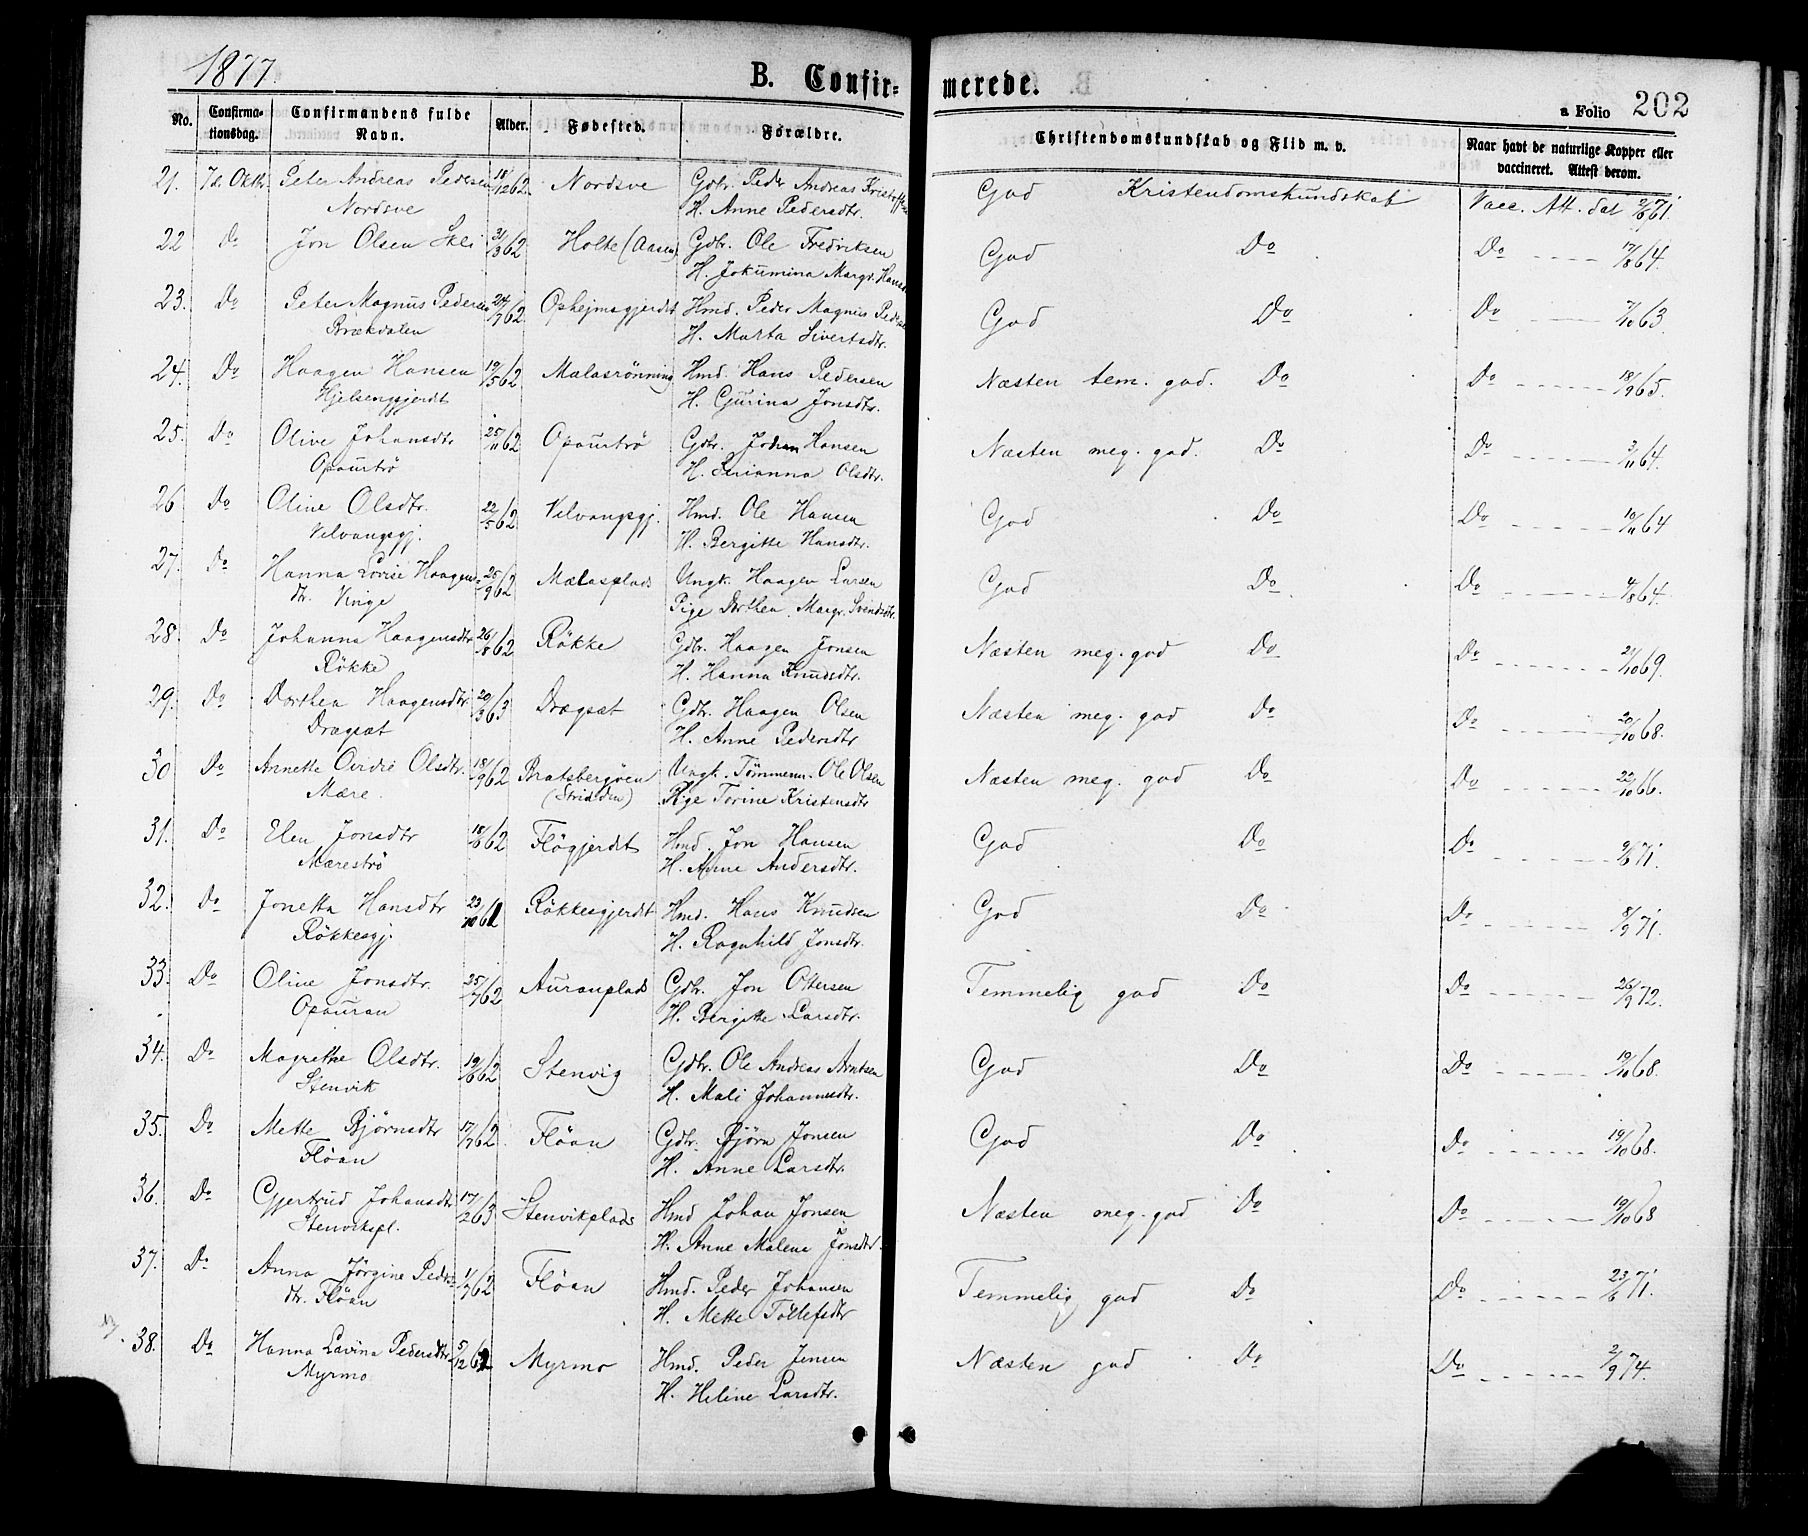 1877.
B. Confirmerede.
a Folio 202
No. Confirmationsdag. Confirmandens fulde Navn. Alder. Fødested. Forældre. Christendomskundskab og Flid m. v. Naar havt de naturlige Kopper eller vaccineret. Attest derom.
21. 7de Oktbr. Peter Andreas Pedersen 18/12 62 Nordsve Gdbr. Peder Andreas Kristoffersen God Kristendomskundskab Vacc. Att. dat 9/6 71.
Nordsve H. Anne Pedersdtr.
22 Do Jon Olsen Sklei 31/3 62 Holte (Aasen) Gdbr. Ole Fredriksen God Do Do 17/8 64.
H. Jokumina Margr. Hansd
23. Do Peter Magnus Pedersen 24/7 62 Ophejmsgjerdet Hmd. Peder Magnus Pedersen God Do Do 7/10 63.
Brækdalen H. Marta Sivertsdtr.
24. Do Haagen Hansen 19/5 62 Mælasrönning Hmd. Hans Pedersen Næsten tem. god. Do Do 18/9 65.
Hjelsengjerdt H. Gjurina Jonsdtr.
25. Do Olive Johansdtr 25/11 62 Opaurtrö Gdbr. Johan Hansen Næsten meg. god. Do Do 3/11 64.
Opaurtrö H. Serianna Olsdtr.
26 Do Oline Olsdtr. 22/5 62 Velvangsgj. Hmd. Ole Hansen God Do Do 10/11 64
Velvangsgj. H. Bergitte Hansdtr.
27. Do Hanna Lovise Haagens- 25/9 62 Mælasplads Ungk. Haagen Larsen God Do Do 4/8 64.
dtr. Vinge Pige Dorthea Margr. Svendsdtr.
28. Do Johanna Haagensdtr 26/8 62 Rökke Gdbr. Haagen Jonsen Næsten meg. god Do Do 21/10 69.
Rökke H. Hanna Knudsdtr.
29. Do Dorthea Haagensdtr 20/3 63 Dragsæt Gdbr. Haagen Olsen Næsten meg. god Do Do 20/10 68.
Dragsæt H. Anne Pedersdtr
30 Do Annette Ovidie Olsdtr. 18/9 62 Bratsbergöen Ungk. Tömmerm. Ole Olsen Næsten meg. god Do Do 22/10 66.
Mære. (Strinden) Pige Torine Kristensdtr
31. Do Elen Jonsdtr 18/6 62 Flögjerdet Hmd. Jon Hansen God Do Do 9/6 71.
Mæreströ H. Anne Andersdtr.
32. Do Jonetta Hansdtr 23/10 61 Rökkesgjerdet Hmd. Hans Knudsen God Do Do 8/9 71.
Rökkesgj. H. Ragnhild Jonsdtr.
33. Do Oline Jonsdtr. 25/7 62 Auranplads Gdbr. Jon Ottersen Temmelig god Do Do 26/9 72.
Opauran H. Bergitte Larsdtr.
34. Do Magrethe Olsdtr. 19/6 62 Stenvig Gdbr. Ole Andreas Arntsen God Do Do 19/10 68.
Stenvik H. Mali Johannesdtr.
35. Do Mette Bjørnsdtr 17/7 62 Flöan Gdbr. Bjørn Jonsen God Do Do 19/10 68.
Flöan H. Anne Larsdtr.
36. Do Gjertrud Johansdtr 17/2 63 Stenvikplads Hmd Johan Jonsen Næsten meg. god Do Do 19/10 68
Stenvikspl. H. Anne Malene Jonsdtr.
37. Do Anna Jørgine Peders- 11/7 62 Flöan Hmd. Peder Johansen Temmelig god Do Do 23/6 71.
dtr. Flöan H. Mette Tollefsdtr
38. Do Hanna Lavina Pedersdtr. 5/12 62 Myrmo Hmd. Peder Jensen Næsten god Do Do 2/9 74.
Myrmo H. Heline Larsdtr.